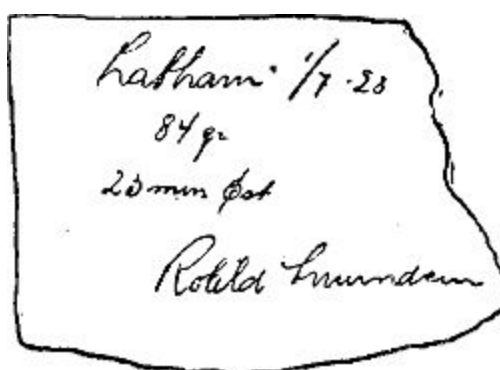 Latham 1/7-28
84 gr
23 min Øst
Roald Amundsen